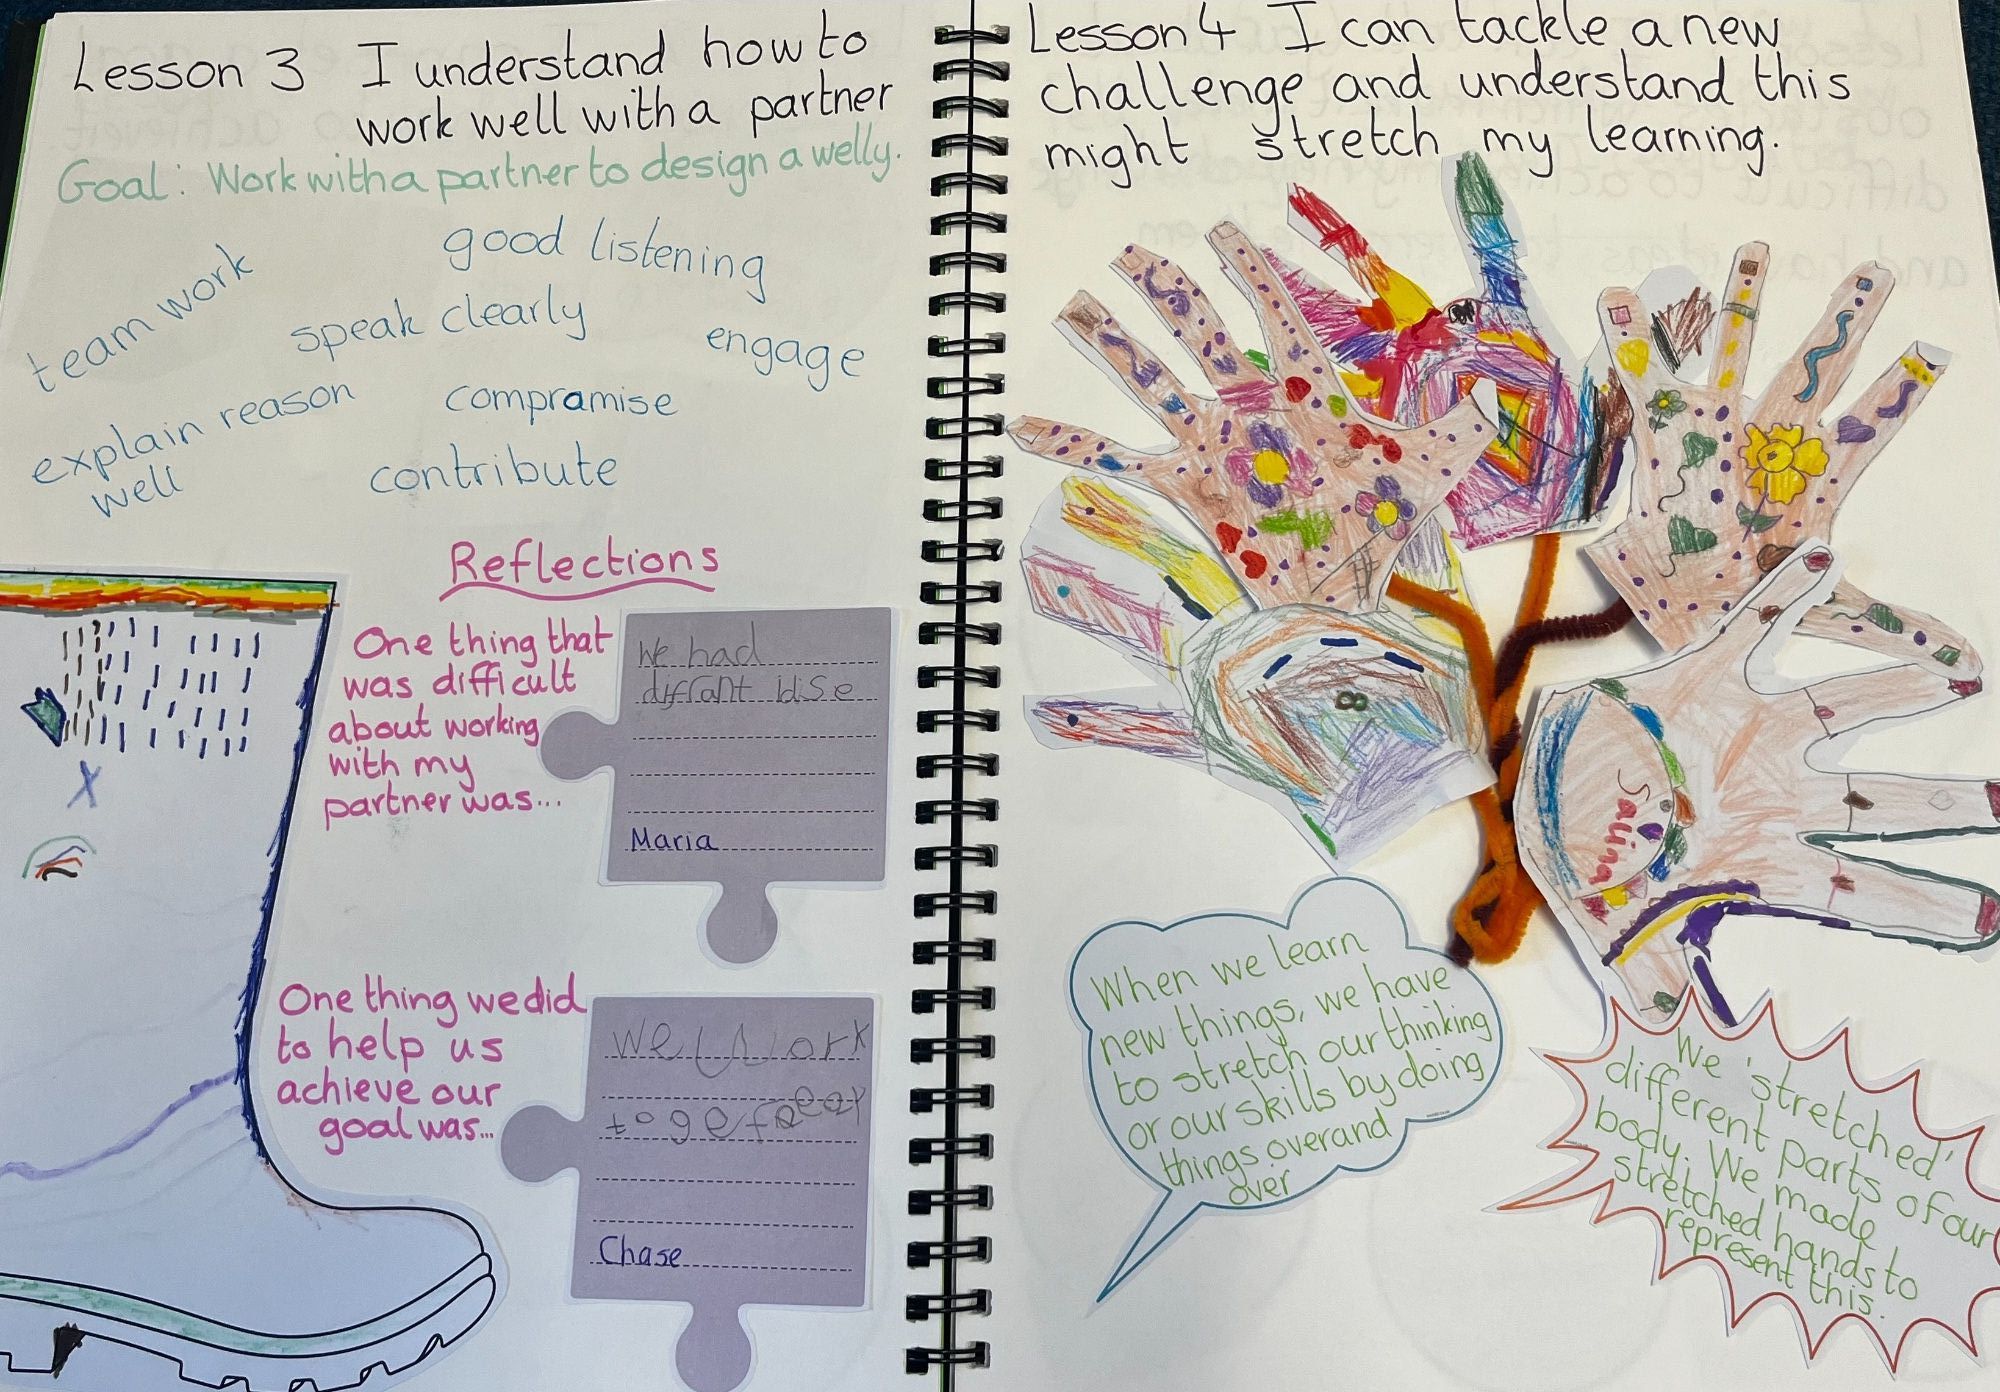 Lesson 3 I understand how to
work well with a partner
Goal: Work with a partner to design a welly.
team work
good listening
speak clearly
engage
explain reason
well
compramise
contribute
Reflections
One thing that
was difficult
about working
with my
partner was...
We had
diffrant idise
Maria
One thing we did
to help us
achieve our
goal was...
we work
Chase
Lesson 4 I can tackle a new
challenge and understand this
might stretch my learning.
Saina
When we learn
new things, we have
to stretch our thinking
or our skills by doing
things over and
over
We 'stretched'
different parts of our
body. We made
stretched hands to
represent this.